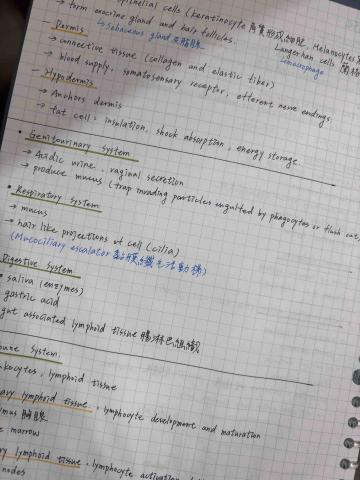 epithelial cells (keratinocyte 角質形成細胞, Melanocytes
→ form exocrine gland and hair follicles.
Langerhan cells
↳ sebaceous gland 皮脂腺
↳ macrophage
- Dermis
→ connective tissue (collagen and elastic fiber)
→ blood supply, somatosensory receptor, efferent nerve endings
- Hypodermis
→ Anchors dermis
→ fat cell: insulation, shock absorption, energy storage.
• Genitourinary system
→ Acidic urine, vaginal secretion
→ produce mucus (trap invading particles engulfed by phagocytes or flush out)
• Respiratory system
→ mucus
→ hair like projections of cell (cilia)
(Mucociliary escalator 黏膜纖毛活動梯)
Digestive system
saliva (enzymes)
gastric acid
gut associated lymphoid tissue 腸淋巴組織
mune system.
kocytes, lymphoid tissue
ary lymphoid tissue, lymphocyte development and maturation
ymus 胸腺
e marrow
ry lymphoid tissue, lymphocyte activation
nodes